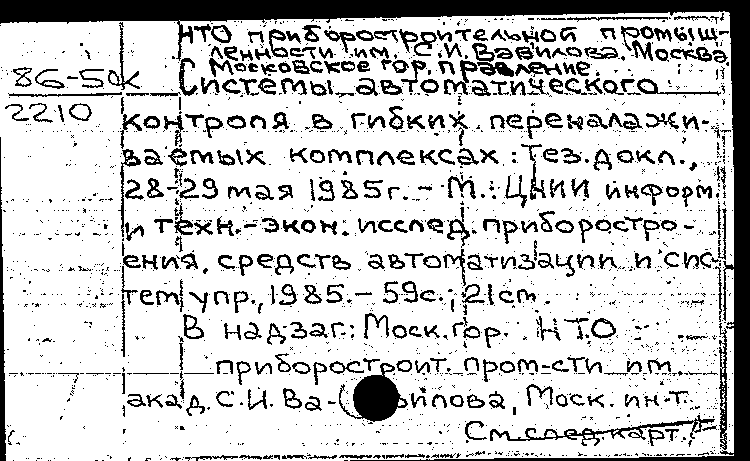 НТО приборостроительной промыш-
ленности им. С.И. Вавилова. Москва.
Московское гор. правление
86-50к
Системы автоматического
2210
контроля в гибких переналажи-
ваемых комплексах: Тез. докл.,
28-29 мая 1985г. - М.: ЦНИИ информ.
и техн.-экон. исслед. приборостро-
ения, средств автоматизации и сис-
тем упр., 1985. - 59с.; 21см.
В надзаг.: Моск. гор. НТО
приборостроит. пром-сти им.
акад. С.И. Ва- вилова, Моск. ин-т.
См. след. карт.